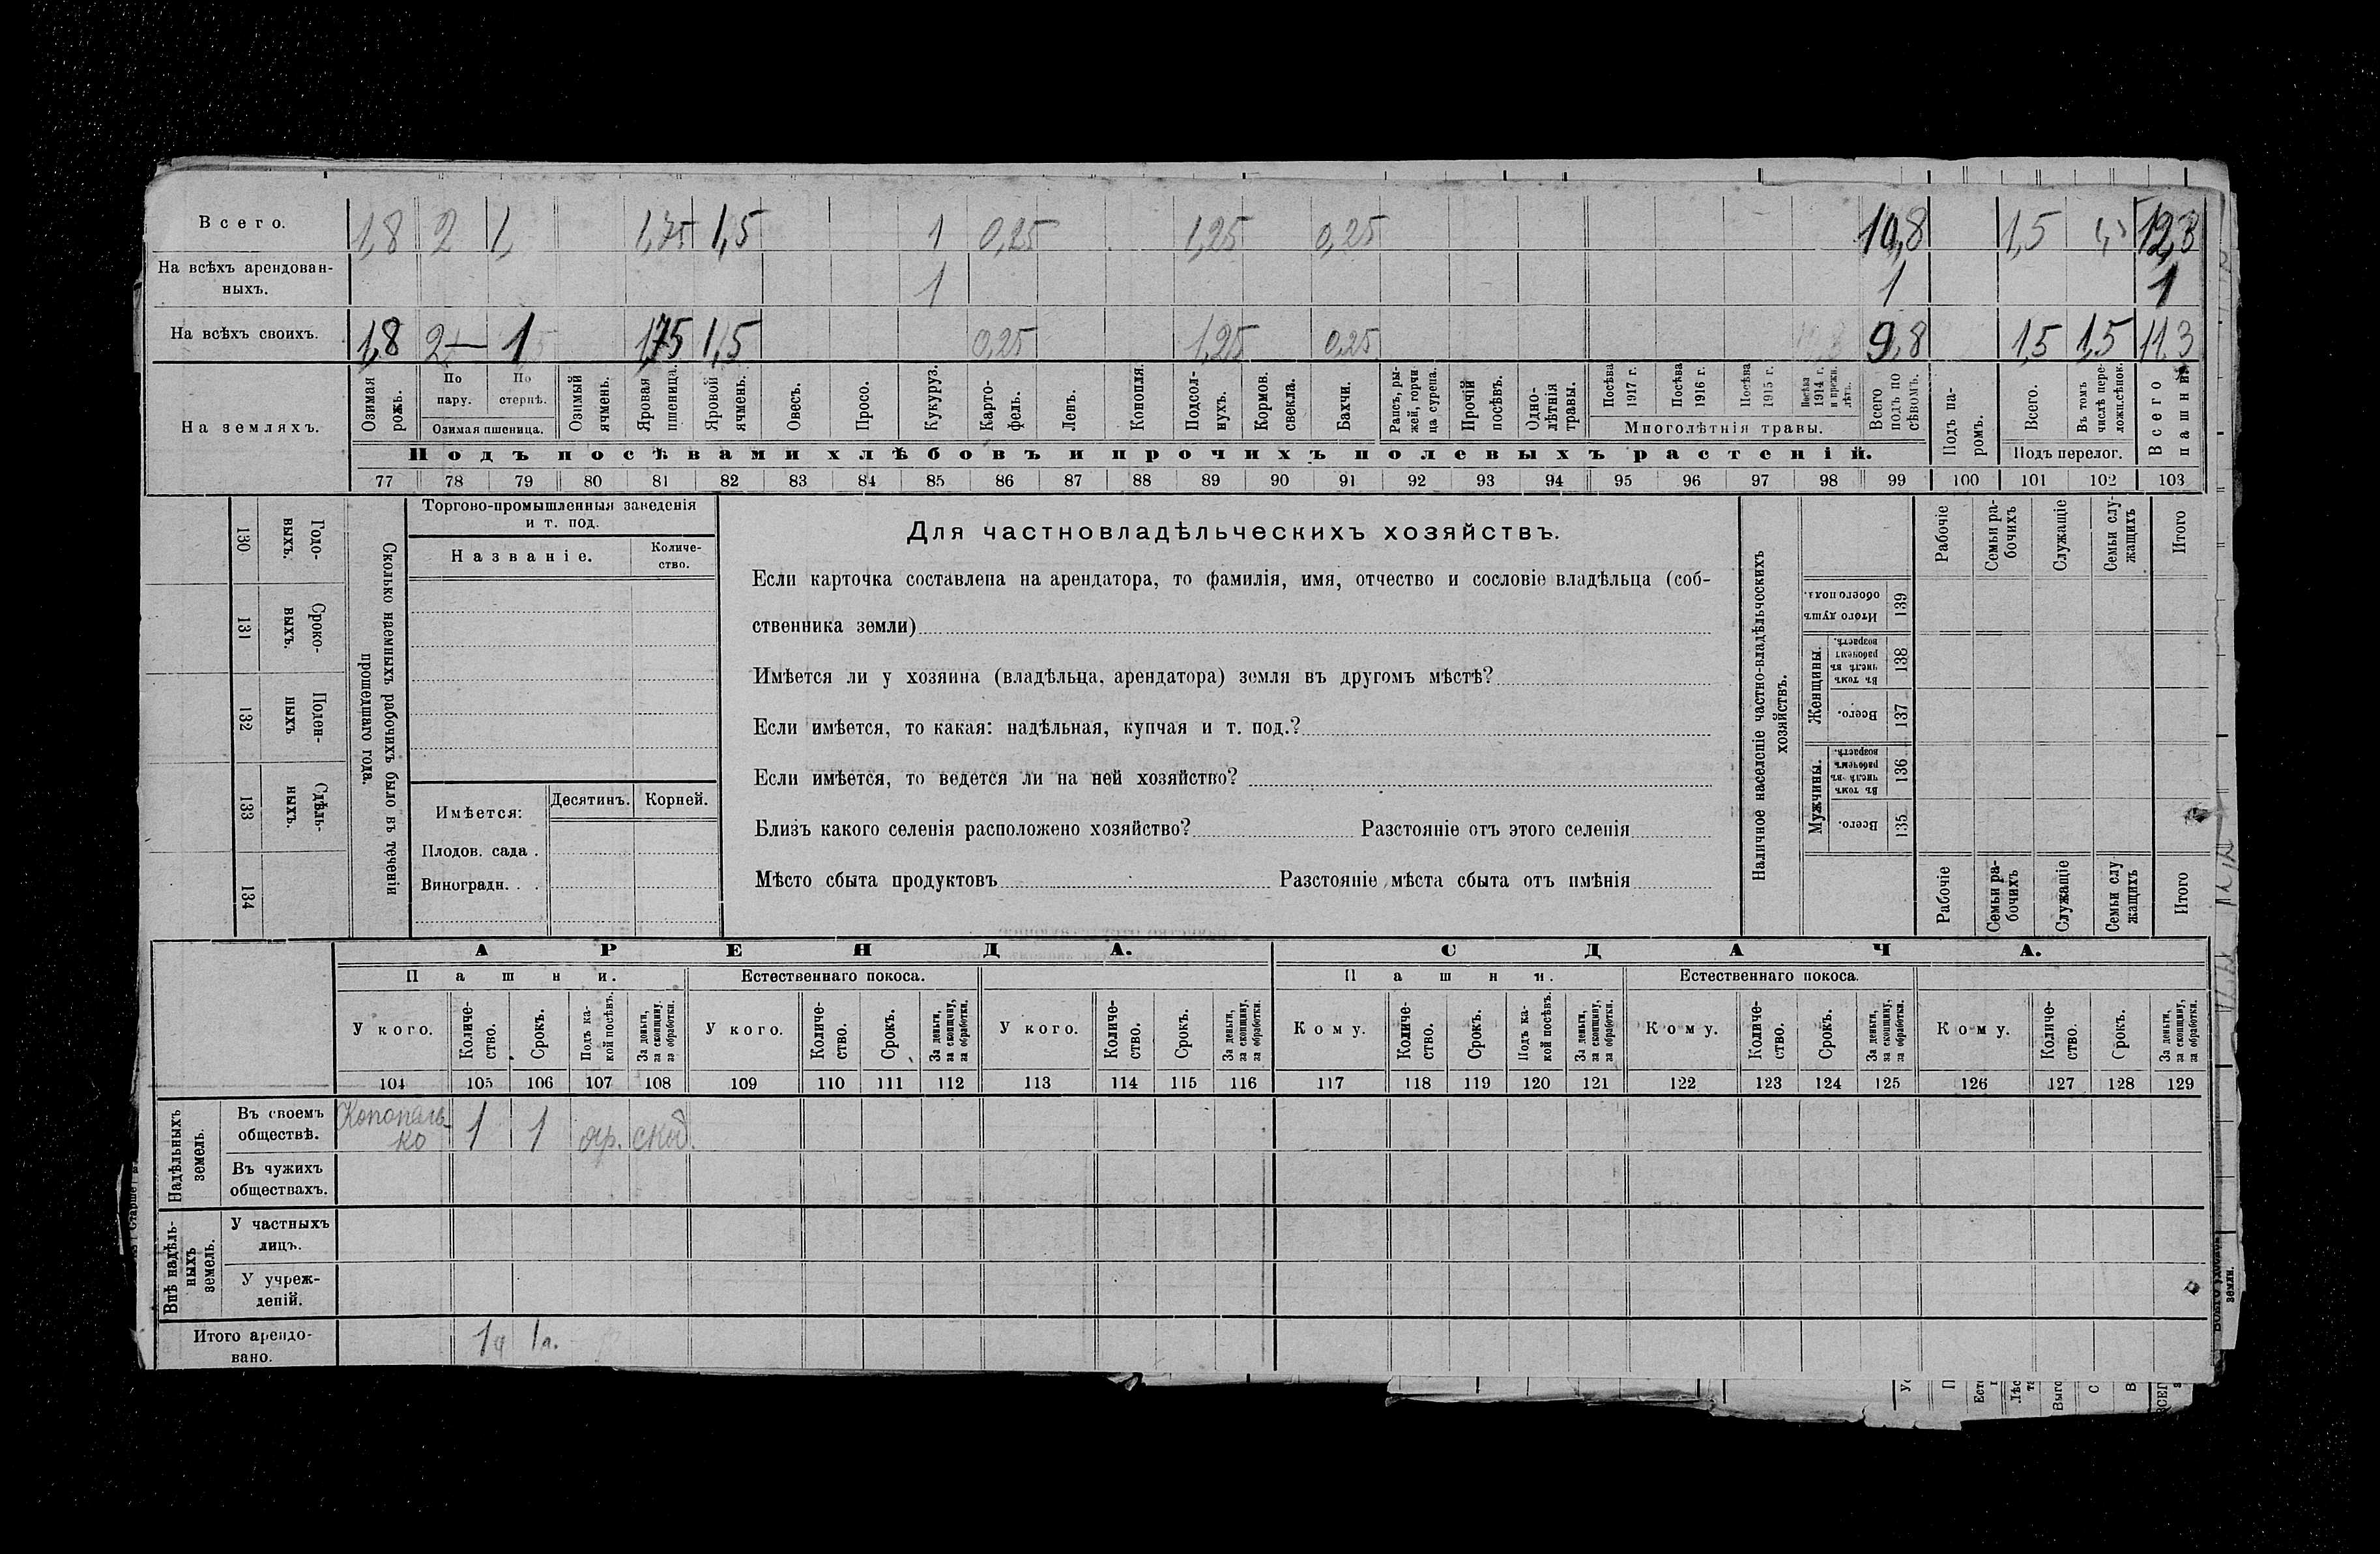 Всего. 1,8 2 1, 1,75 1,5 1 0,25 1,25 0,25 10,8 1,5 12,3
На всѣхъ арендован-
ныхъ. 1 1 1
На всѣхъ своихъ. 1,8 2 — 1 1,75 1,5 0,25 1,25 0,25 9,8 1,5 1,5 11,3
На земляхъ.
Озимая рожь.
По пару.
По стернѣ.
Озимая пшеница.
Озимый ячмень.
Яровая пшеница.
Яровой ячмень.
Овесъ.
Просо.
Кукуруз.
Карто-
фель.
Ленъ.
Конопля.
Подсол-
нухъ.
Кормов. свекла.
Бахчи.
Рапсъ, ры-
жей, горчи
ца сурепа.
Прочій посѣвъ.
Одно-
лѣтнія
травы.
Посѣва 1917 г.
Посѣва 1916 г.
Посѣва 1915 г.
Посѣва
1914 г.
и прежн.
лѣтъ.
Многолѣтнія травы.
Всего
подъ по
сѣвомъ.
Подъ па-
ромъ.
Всего.
Въ томъ
числѣ пере-
ложн.сѣнок.
Подъ перелог.
Всего пашни
Подъ посѣвами хлѣбовъ и прочихъ полевыхъ растеній.
77 78 79 80 81 82 83 84 85 86 87 88 89 90 91 92 93 94 95 96 97 98 99 100 101 102 103
130 131 132 133 134
Годо-
выхъ.
Сроко-
выхъ.
Поден-
ныхъ
Сдѣль-
ныхъ.
Сколько наемныхъ рабочихъ было въ теченіи
прошедшаго года.
Торгово-промышленныя заведенія
и т. под.
Названіе.
Количе-
ство.
Имѣется:
Десятинъ.
Корней.
Плодов. сада .
Виноградн. . .
Для частновладѣльческихъ хозяйствъ.
Если карточка составлена на арендатора, то фамилія, имя, отчество и сословіе владѣльца (соб-
ственника земли)
Имѣется ли у хозяина (владѣльца, арендатора) земля въ другомъ мѣстѣ?
Если имѣется, то какая: надѣльная, купчая и т. под.?
Если имѣется, то ведется ли на ней хозяйство?
Близъ какого селенія расположено хозяйство? Разстояніе отъ этого селенія
Мѣсто сбыта продуктовъ Разстояніе мѣста сбыта отъ имѣнія
Наличное населеніе частно-владѣльческихъ
хозяйствъ.
Рабочіе
Семьи ра-
бочихъ
Служащіе
Семьи слу-
жащихъ
Итого
Итого душъ
обоего пола.
139
Женщины.
Въ томъ
числѣ въ
рабочемъ
возрастѣ.
138
Всего.
137
Мужчины.
Въ томъ
числѣ въ
рабочемъ
возрастѣ.
136
Всего.
135
Рабочіе
Семьи ра-
бочихъ
Служащіе
Семьи слу
жащихъ
Итого
АРЕНДА. СДАЧА.
Пашни. Естественнаго покоса. Пашни. Естественнаго покоса.
У кого.
Количе-
ство.
Срокъ.
Подъ ка-
кой посѣвъ.
За деньги,
за скопщину,
за обработки.
У кого.
Количе-
ство.
Срокъ.
За деньги,
за скопщину,
за обработки.
У кого.
Количе-
ство.
Срокъ.
За деньги,
за скопщину,
за обработки.
Кому.
Количе-
ство.
Срокъ.
Подъ ка-
кой посѣвъ.
За деньги,
за скопщину,
за обработки.
Кому.
Количе-
ство.
Срокъ.
За деньги,
за скопщину,
за обработки.
Кому.
Количе-
ство.
Срокъ.
За деньги,
за скопщину,
за обработки.
104 105 106 107 108 109 110 111 112 113 114 115 116 117 118 119 120 121 122 123 124 125 126 127 128 129
Надѣльныхъ
земель.
Въ своемъ
обществѣ. 1 1 яр.
Въ чужихъ
обществахъ.
Внѣ надѣль-
ныхъ
земель.
У частныхъ
лицъ.
У учреж-
деній.
Итого арендо-
вано. 1